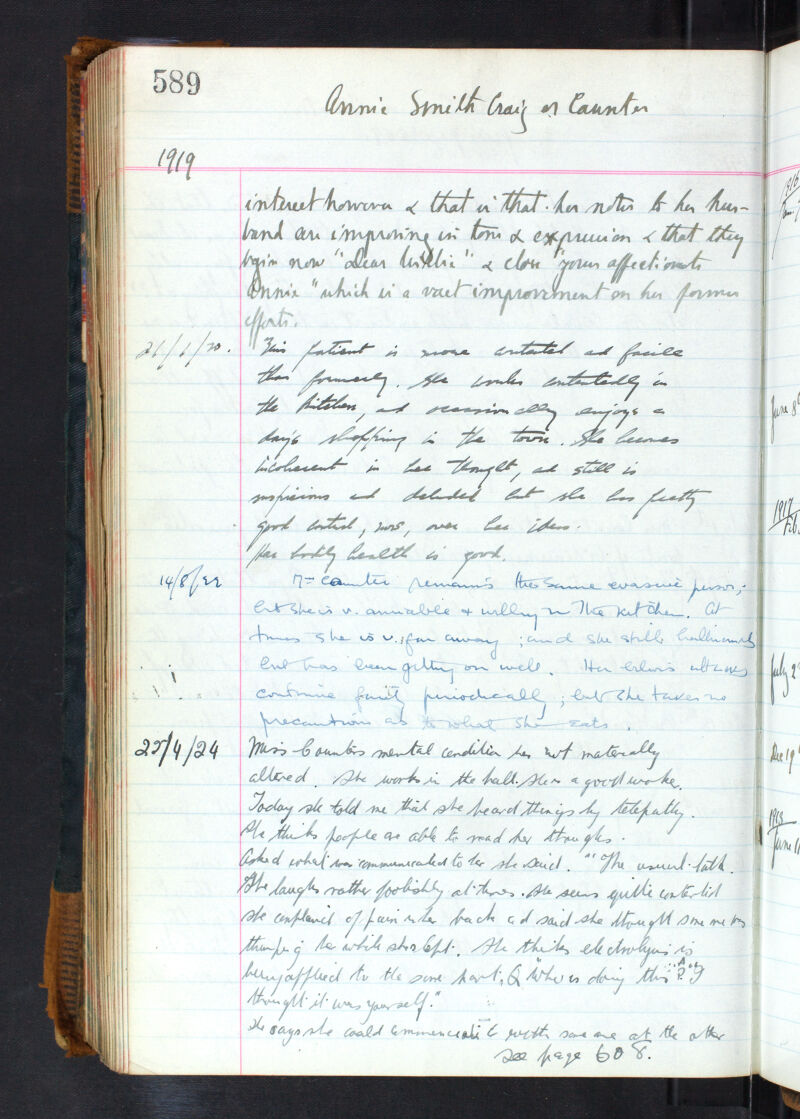 589
Annie Smith Craig or Caunter
1919
interest however & that is that her notes to her hus-
band are improving in tone & expression & that they
begin now "Dear Willie" & close "yours affectionate
Annie" which is a vast improvement on her former
efforts.
This patient is more contented and facile
than formerly. She works contentedly in
the kitchen, and occasionally enjoys a
day's shopping in the town. She becomes
incoherent in her thought, and still is
suspicious and deluded but she has pretty
good control, now, over her ideas.
Her bodily health is good.
14/8/22 Caunter remains the same evasive person;
but she is v. amiable & willing in the kitchen. At
times she is v. far away; and she still hallucinates
but has been getting on well. Her attacks
continue fairly periodically; but she takes no
precautions as to what she eats.
25/4/24 Miss Counters mental condition has not materially
altered. She works in the hall. She is a good worker.
Today she told me that she heard things by telepathy.
She thinks people are able to read her thoughts.
Asked what was communicated to her she said. "The usual talk.
She laughs rather foolishly at times. She seems quite contented
She complained of pain in her back and said she thought some one was
thumping her while she slept. She thinks electrolysis is
being applied to the same part. Q "Who is doing this"? A "I
thought it was yourself."
She says she could communicate with some one at the other
see page 608.
June 8
1917
Feb.
July 2
Dec 19
1918
June 11